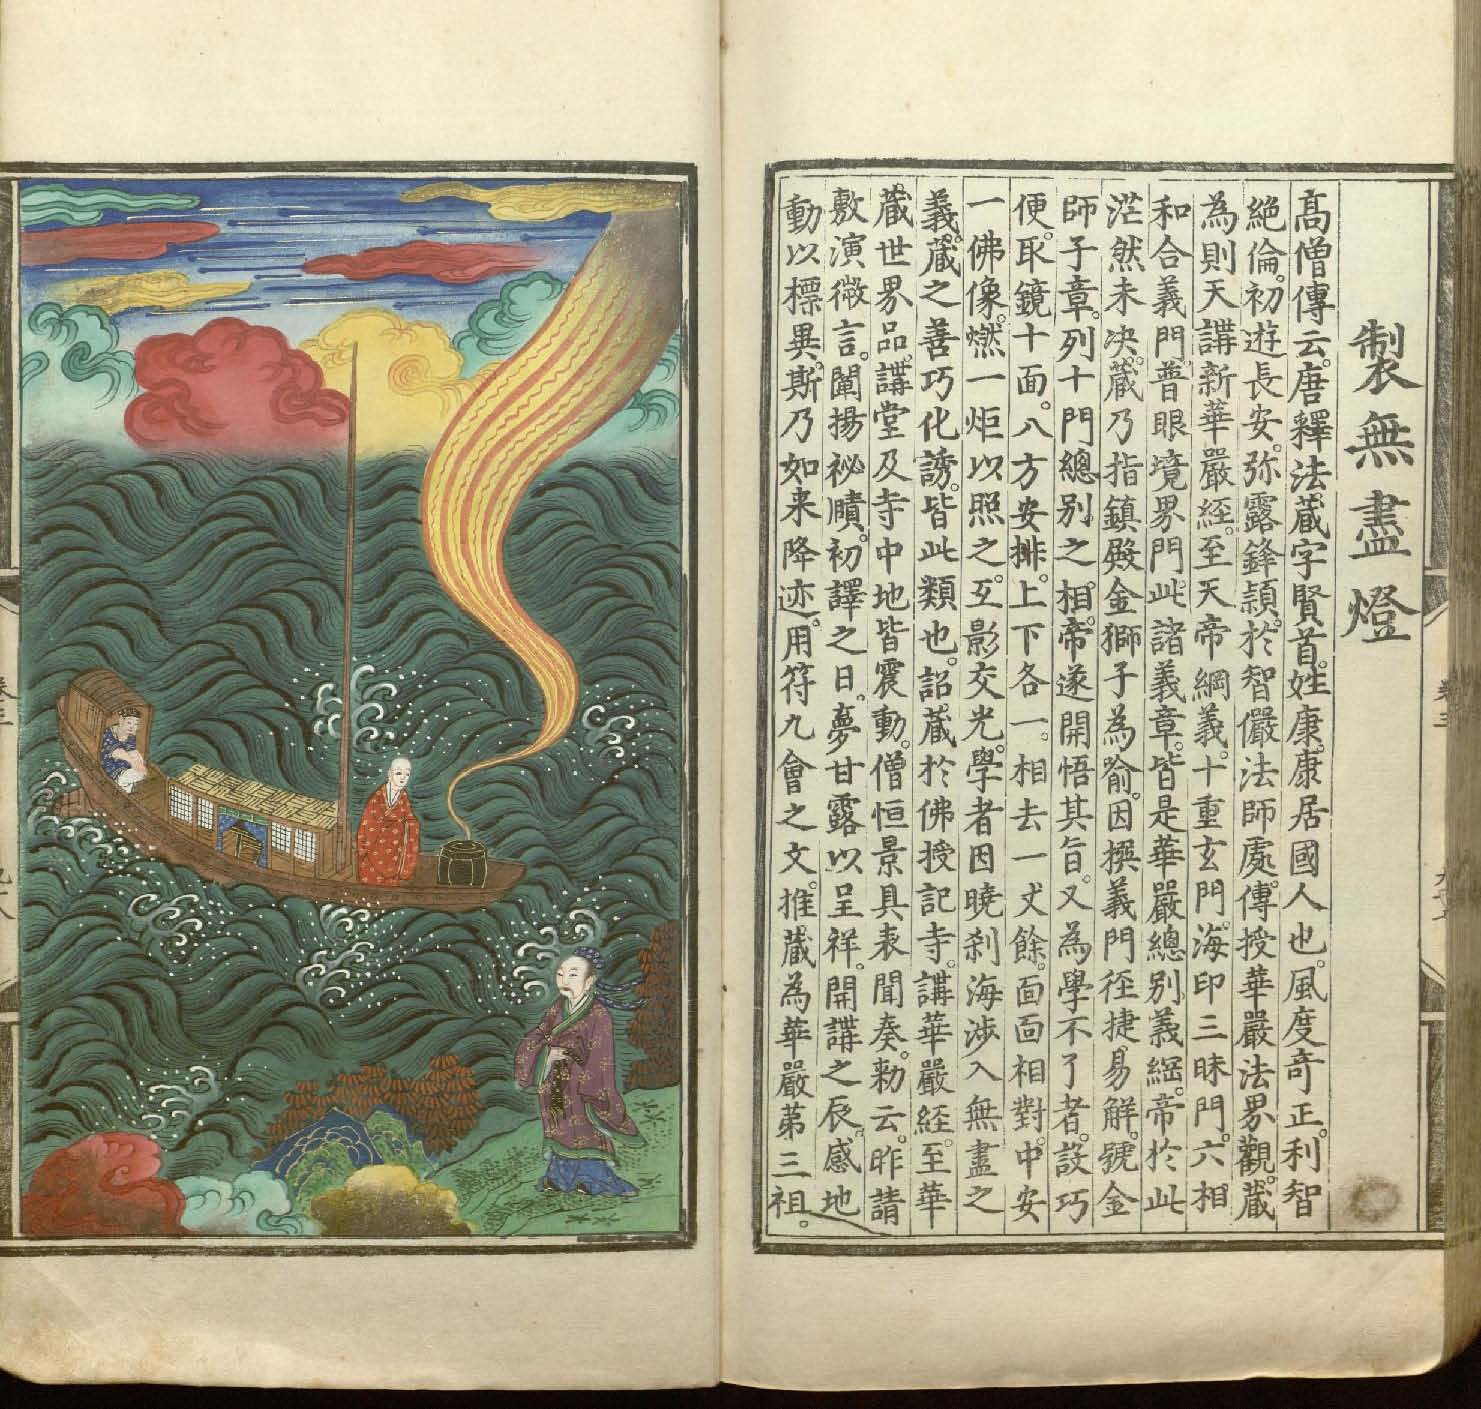 製無盡燈
高僧傳云。唐釋法藏字賢首。姓康。康居國人也。風度奇正。利智
絕倫。初遊長安。弥露鋒頴。於智儼法師處。傳授華嚴法界觀。藏
為則天講新華嚴經。至天帝網義。十重玄門。海印三昧門。六相
和合義門。普眼境界門。此諸義章。皆是華嚴總別義綱。帝於此
茫然未決。藏乃指鎮殿金獅子為喻。因撰義門徑捷易解。號金
師子章。列十門總別之相。帝遂開悟其旨。又為學不了者。設巧
便。取鏡十面。八方安排。上下各一。相去一丈餘。面面相對。中安
一佛像。燃一炬以照之。互影交光。學者因曉刹海涉入無盡之
義。藏之善巧化誘。皆此類也。詔藏於佛授記寺。講華嚴經。至華
藏世界品。講堂及寺中地皆震動。僧恒景具表聞奏。勑云。昨請
敷演微言。闡揚祕賾。初譯之日。夢甘露以呈祥。開講之辰。感地
動以標異。斯乃如来降迹。用符九會之文。推藏為華嚴第三祖。
卷三